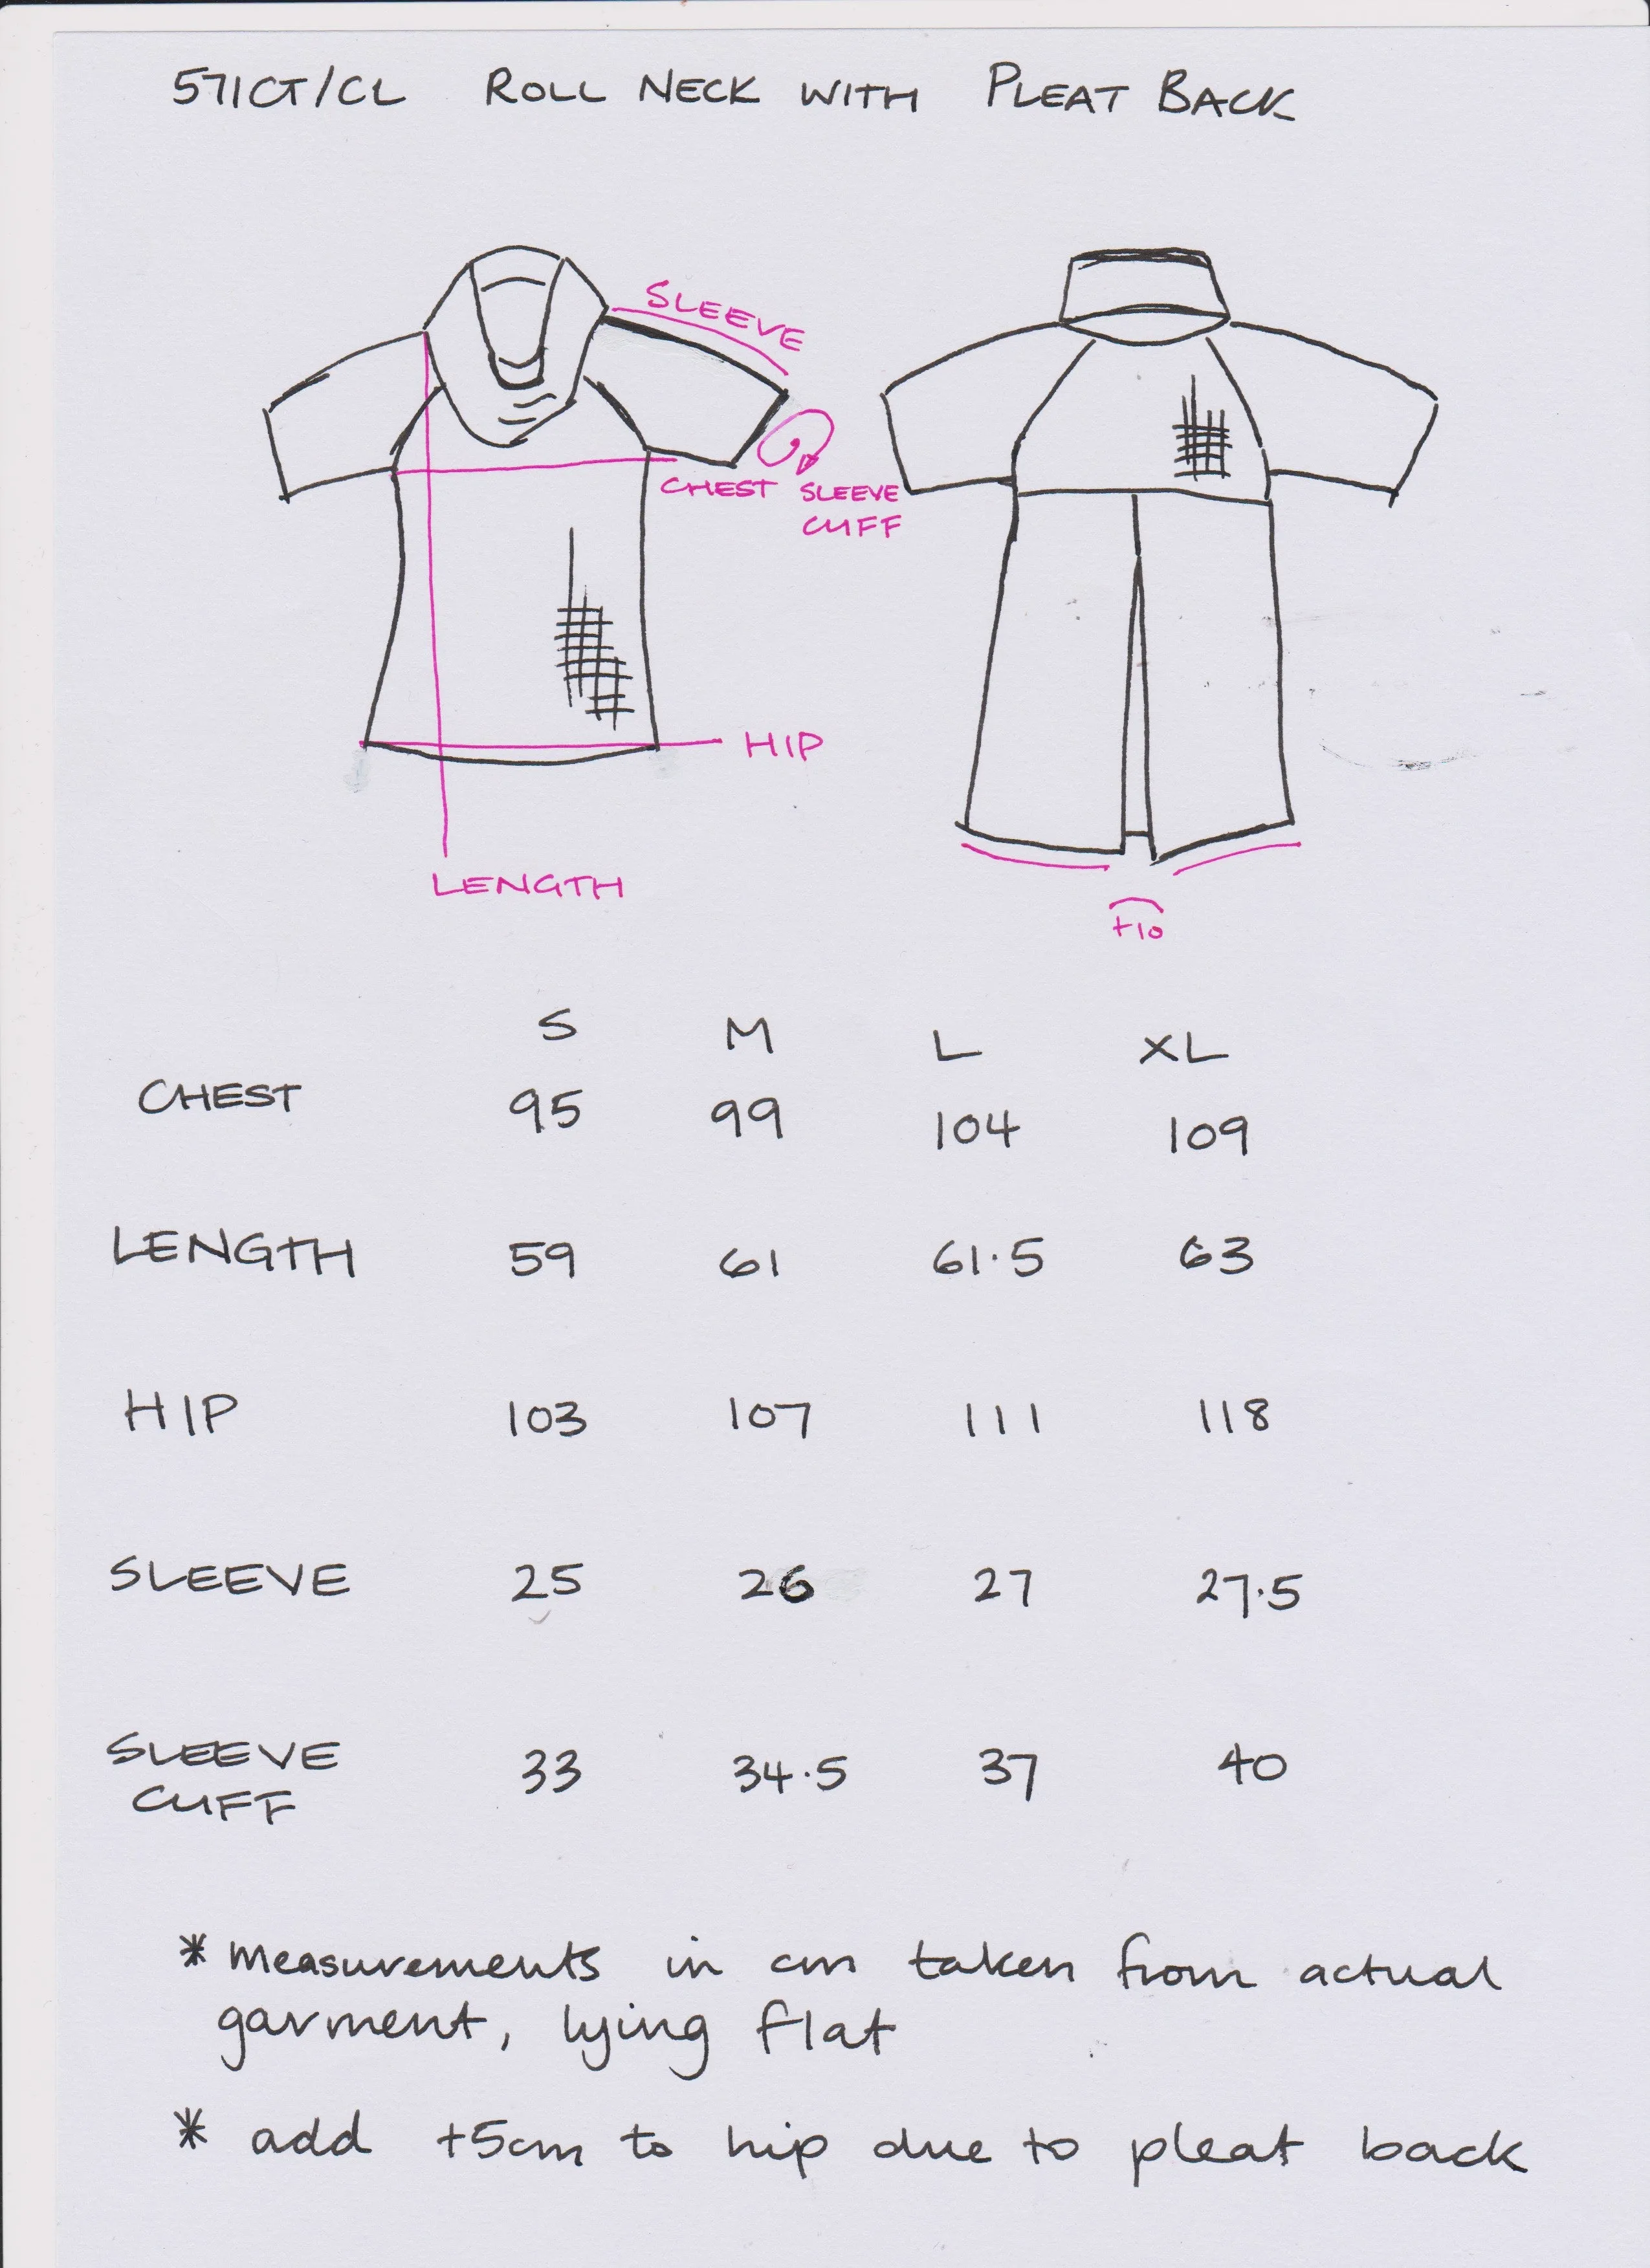 571CT/CL ROLL NECK WITH PLEAT BACK
SLEEVE
CHEST
SLEEVE
CUFF
HIP
LENGTH
+10
S M L XL
CHEST 95 99 104 109
LENGTH 59 61 61.5 63
HIP 103 107 111 118
SLEEVE 25 26 27 27.5
SLEEVE
CUFF 33 34.5 37 40
* measurements in cm taken from actual
garment, lying flat
* add +5cm to hip due to pleat back